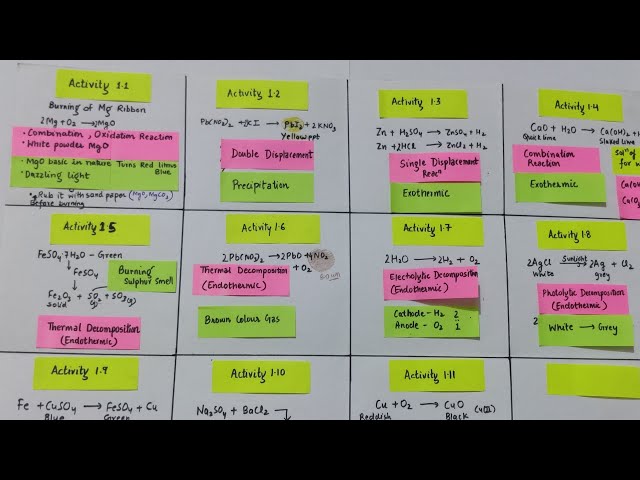 Activity 1.1
Burning of Mg Ribbon
2Mg + O2 → 2MgO
• Combination, Oxidation Reaction
• White powder MgO
• MgO basic in nature Turns Red litmus Blue
• Dazzling light
• Rub it with sand paper (MgO, MgCO3)
Before burning
Activity 1.2
Pb(NO3)2 + KI → PbI2 + 2KNO3
Yellow ppt
Double Displacement
Precipitation
Activity 1.3
Zn + H2SO4 → ZnSO4 + H2
Zn + 2HCl → ZnCl2 + H2
Single Displacement
Reacn
Exothermic
Activity 1.4
CaO + H2O → Ca(OH)2 +
Quick lime Slaked Lime
Combination
Reaction
Exothermic
Soln of
for w
Ca(OH
CaCO3
Activity 1.5
FeSO4.7H2O - Green
↓
FeSO4
↓
Fe2O3 + SO2 + SO3(g)
solid (g)
Burning
Sulphur Smell
Thermal Decomposition
(Endothermic)
Activity 1.6
2Pb(NO3)2 → 2PbO + 4NO2
+ O2
Brown
Thermal Decomposition
(Endothermic)
Brown Colour Gas
Activity 1.7
2H2O → 2H2 + O2
Electrolytic Decomposition
(Endothermic)
Cathode - H2 2
Anode - O2 1
Activity 1.8
2AgCl Sunlight → 2Ag + Cl2
White grey
Photolytic Decomposition
(Endothermic)
2
White → Grey
Activity 1.9
Fe + CuSO4 → FeSO4 + Cu
Blue Green
Activity 1.10
Na2SO4 + BaCl2
Activity 1.11
Cu + O2 → CuO
Reddish Black